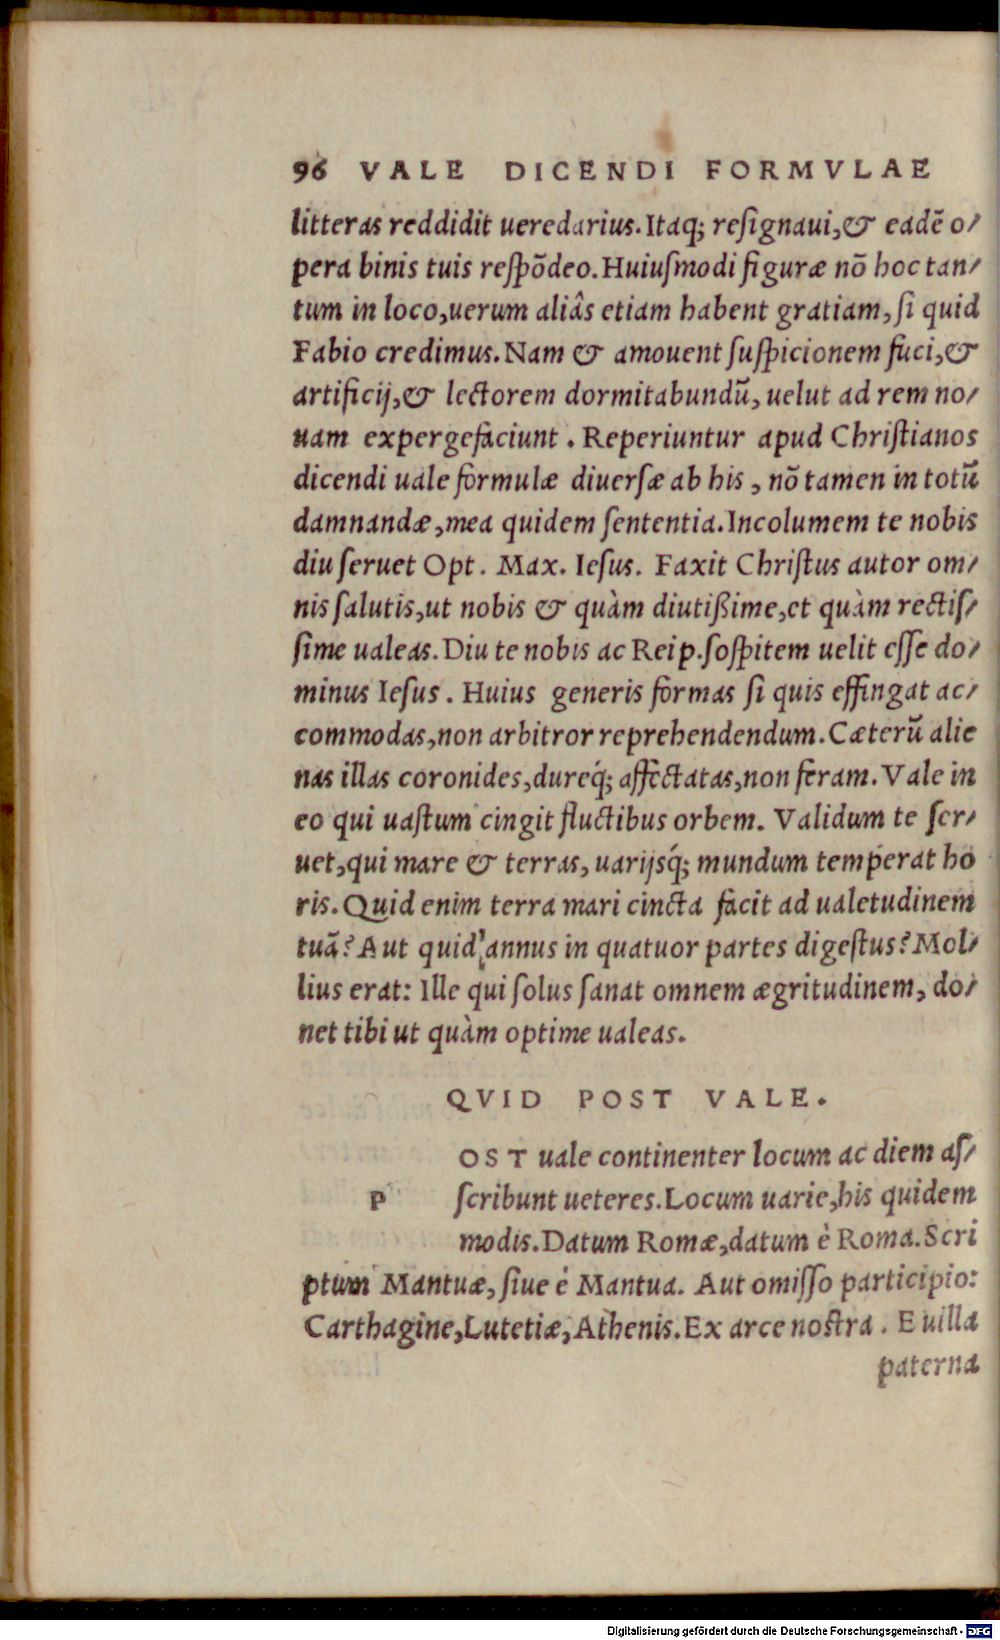 96 VALE DICENDI FORMVLAE
litteras reddidit ueredarius. Itaq; resignaui, & eadē o/
pera binis tuis respōdeo. Huiusmodi figuræ nō hoc tan/
tum in loco, uerum aliâs etiam habent gratiam, si quid
Fabio credimus. Nam & amouent suspicionem fuci, &
artificij, & lectorem dormitabundū, uelut ad rem no/
uam expergefaciunt. Reperiuntur apud Christianos
dicendi uale formulæ diuersæ ab his, nō tamen in totū
damnandæ, mea quidem sententia. Incolumem te nobis
diu seruet Opt. Max. Iesus. Faxit Christus autor om/
nis salutis, ut nobis & quàm diutißime, et quàm rectis/
sime ualeas. Diu te nobis ac Reip. sospitem uelit esse do/
minus Iesus. Huius generis formas si quis effingat ac/
commodas, non arbitror reprehendendum. Cæterū alie
nas illas coronides, dureq́; affectatas, non feram. Vale in
eo qui uastum cingit fluctibus orbem. Validum te ser/
uet, qui mare & terras, uarijsq́; mundum temperat ho
ris. Quid enim terra mari cincta facit ad ualetudinem
tuā? Aut quid annus in quatuor partes digestus? Mol/
lius erat: Ille qui solus sanat omnem ægritudinem, do/
net tibi ut quàm optime ualeas.
QVID POST VALE.
POST uale continenter locum ac diem as/
scribunt ueteres. Locum uarie, his quidem
modis. Datum Romæ, datum è Roma. Scri
ptum Mantuæ, siue è Mantua. Aut omisso participio:
Carthagine, Lutetiæ, Athenis. Ex arce nostra. E uilla
paterna
Digitalisierung gefördert durch die Deutsche Forschungsgemeinschaft - DFG